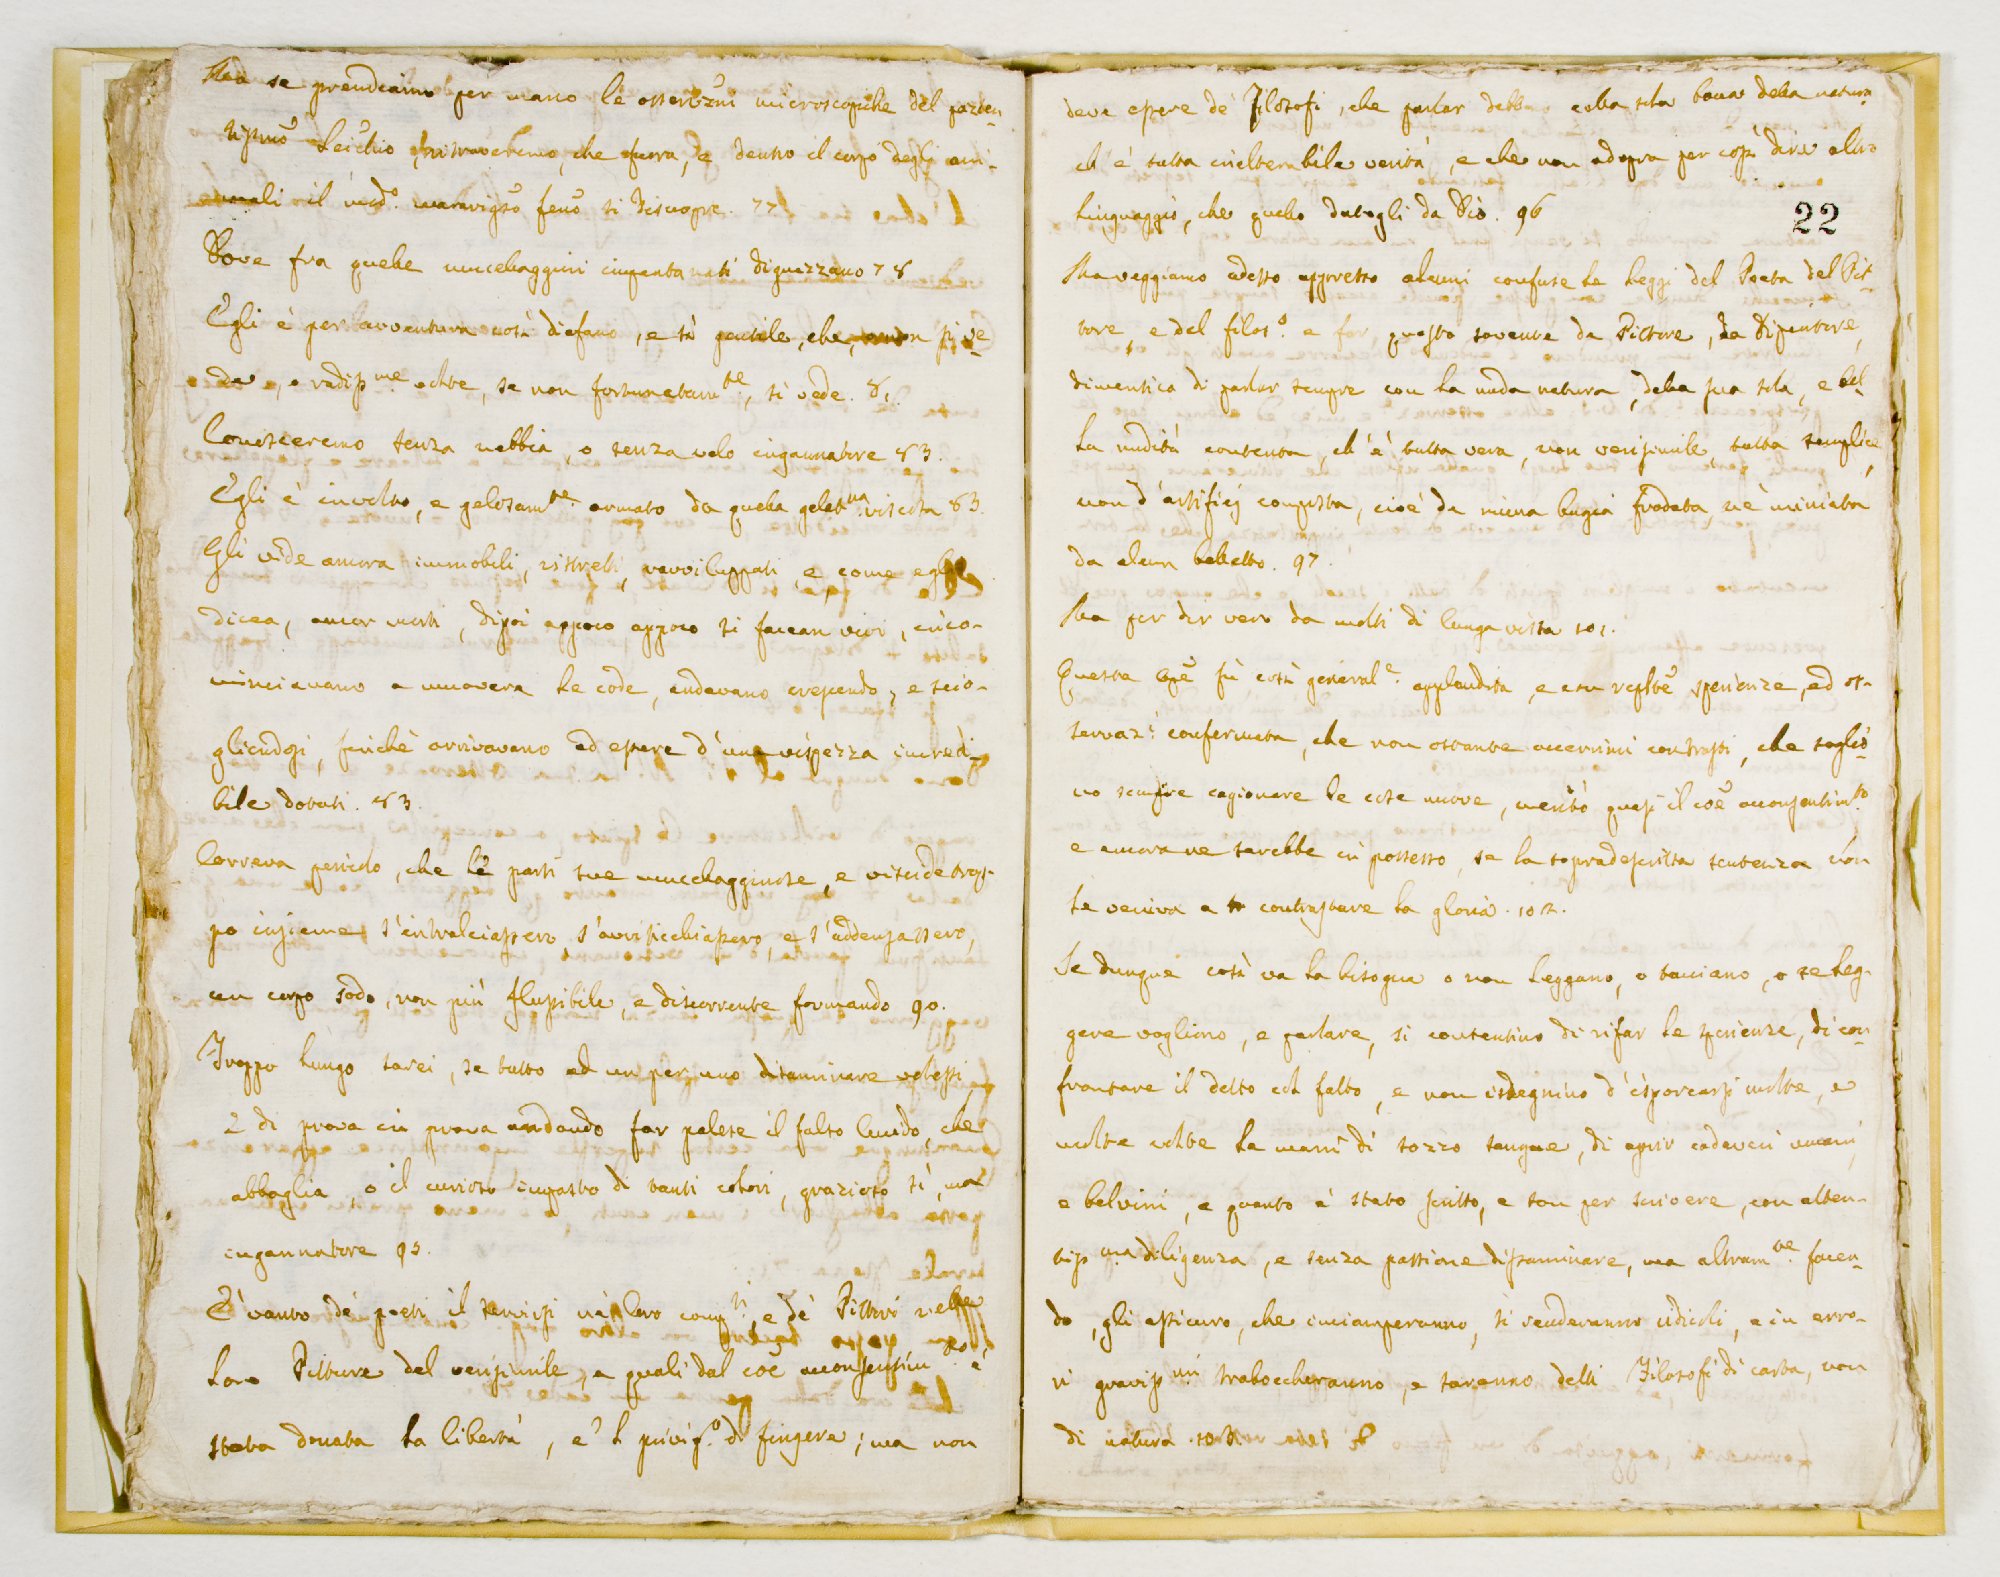 Ma se prendiamo per mano le osservazni microscopiche del pazien-
tissmo Leichio, ritroveremo, che fuora, e dentro il corpo degli ani-
mali il med.o maravigso feno si discopre. 77
Dove fra quelle mucellaggini impantanati diguazzano 78
Egli è per avventura così diafano, e sì gentile, che, non si ve-
de, o radissme volte, se non fortunatamte, si vede. 81.
Conosceremo senza nebbia, o senza velo ingannatore 83.
Egli è involto, e gelosamte armato da quella gelatna viscosa 83.
Gli vide ancora immobili, ristretti, ravviluppati, e, come egli
dicea, ancor morti, dipoi appoco appoco si faccan vivi, inco-
minciavano a muovere le code, andavano crescendo, e scio-
gliendosi, finchè arrivavano ad essere d'una vispezza incredi-
bile dotati. 83.
Correva pericolo, che le parti sue mucellagginose, e viscide trop-
po insieme s'intralciassero, s'avviticchiassero, e s'addensassero,
un corpo sodo, non più flussibile, e discorrente formando 90.
Troppo lungo sarei, se tutto ad un per uno disaminare volessi
e di prova in prova andando far palese il falso lucido, che
abbaglia, o il curioso impasto di tanti colori, grazioso sì, ma
ingannatore 95.
È vanto de' poeti il servirsi nè loro compti, e de' Pittori nelle
loro Pitture del verisimile, a quali dal coe acconsentimto è
stata donata la libertà, e 'l privig.o di fingere; ma non
deve essere de' Filosofi, che parlar debbono colla sola bocca della natura
ch'è tutta inalterabile verità, e che non adopra per così dire altro
linguaggio, che quello datogli da Dio. 96
22
Ma veggiamo adesso appresso alcuni confuse le leggi del Poeta del Pit-
tore, e del filos.o e far questo sovente da Pittore, da dipintore,
dimentica di parlar sempre con la nuda natura, della sua sola, e bel-
la nudità contenta, ch'è tutta vera, non verisimile, tutta semplice,
non d'artificj composta, cioè da niuna bugia frodata, nè miniata
da alcun belletto. 97.
Ma per dir vero da molti di lunga vista 101.
Questa opè fù così generale. applaudita, e con replte sperienze, ed os-
servaz.i confermata, che non ostante accerrimi contrasti, che soglio-
no sempre cagionare le cose nuove, meritò quasi il coe acconsentimto
e ancora ne sarebbe in possesso, se la sopradescritta sentenza non
le veniva a contrastare la gloria. 102.
Se dunque così va la bisogna o non leggano, o tacciano, o se leg-
gere vogliono, e parlare, si contentino di rifar le sperienze, di con-
frontare il detto col fatto, e non isdegnino d'isporcarsi molte, e
molte volte la mani di sozzo sangue, di aprir cadaveri umani,
e belvini, e quanto è stato scritto, e son per scrivere, con atten-
tissma diligenza, e senza passione disaminare, ma altramte. facen-
do, gli assicuro, che inciamperanno, si renderanno ridicoli, e in erro-
ri gravissmi traboccheranno, e saranno detti Filosofi di carta, non
di natura